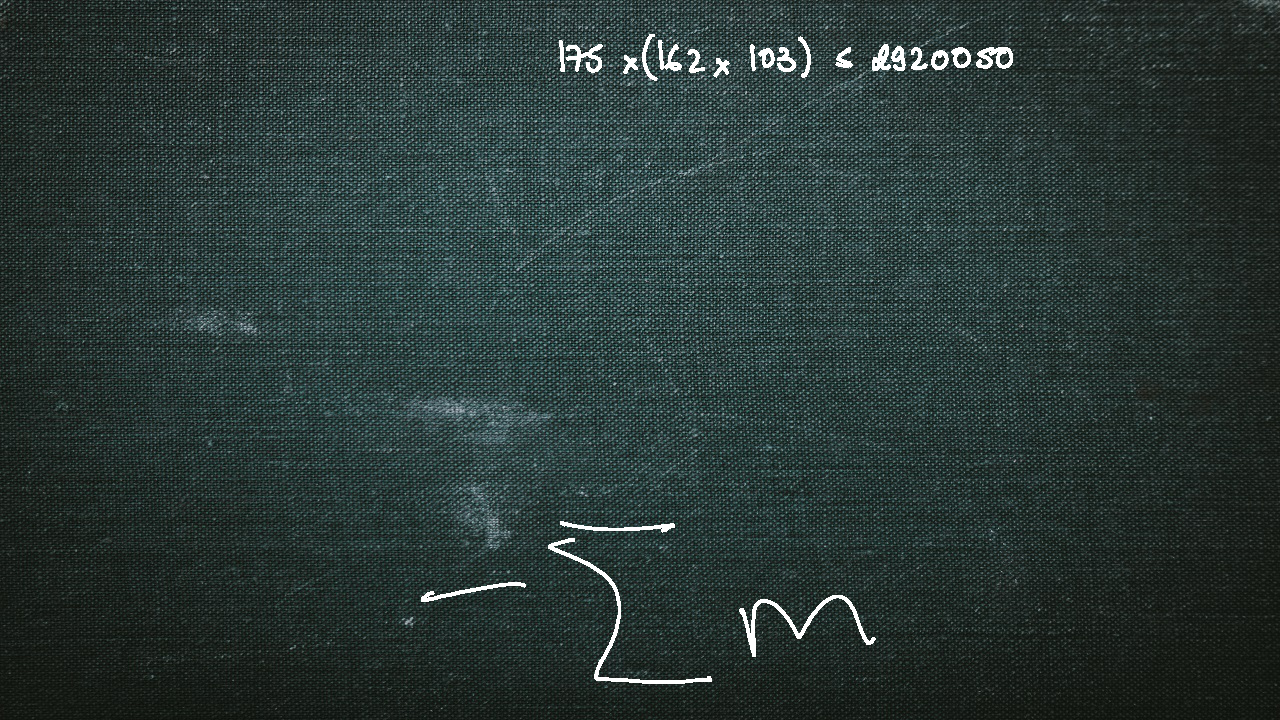 175 x (162 x 103) ≤ 2920050
- Σ m